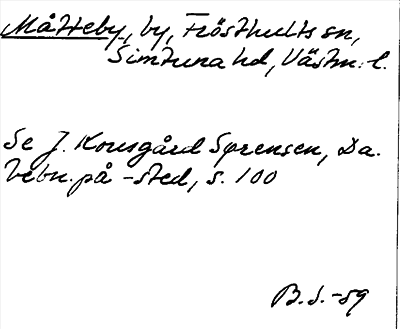 Måtteby, by, Frösthults sn,
Simtuna hd, Västm. l.
Se J. Kousgård Sørensen, Da.
bebn. på -sted, s. 100
B.S. -59